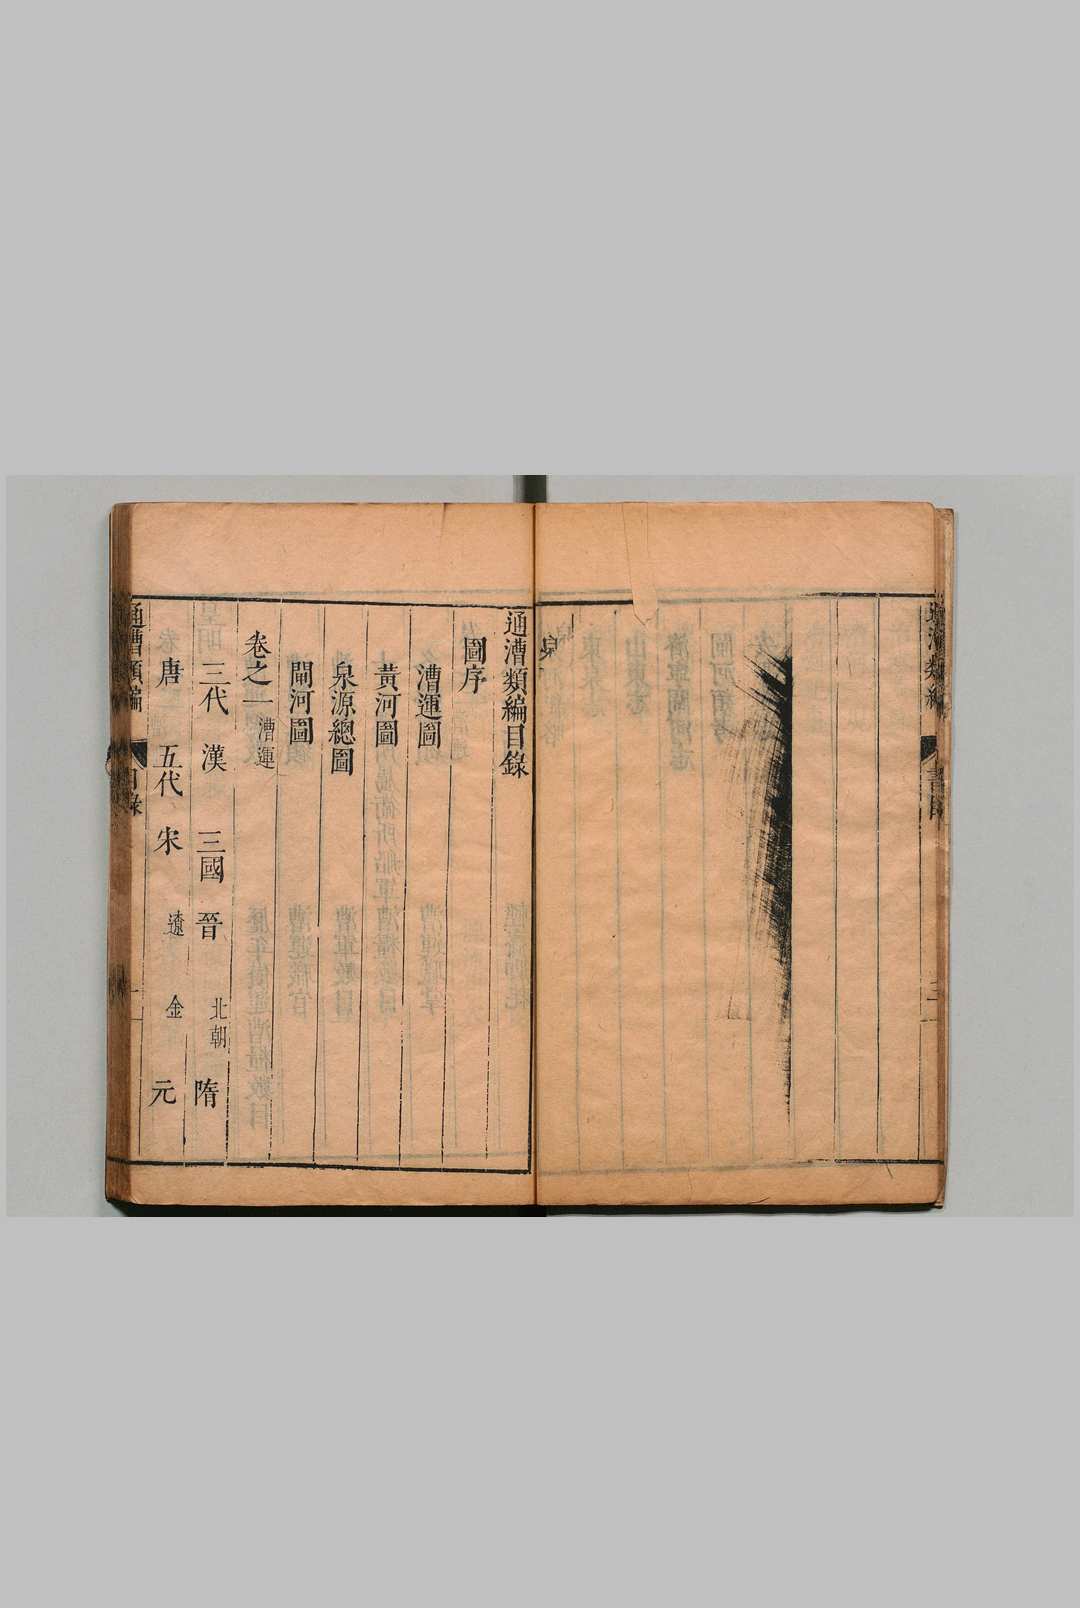 通漕類編
書目
通漕類編目錄
圖序
漕運圖
黃河圖
泉源總圖
閘河圖
卷之一 漕運
三代 漢 三國 晉 北朝 隋
唐 五代 宋 遼 金 元
通漕類編
目錄
一